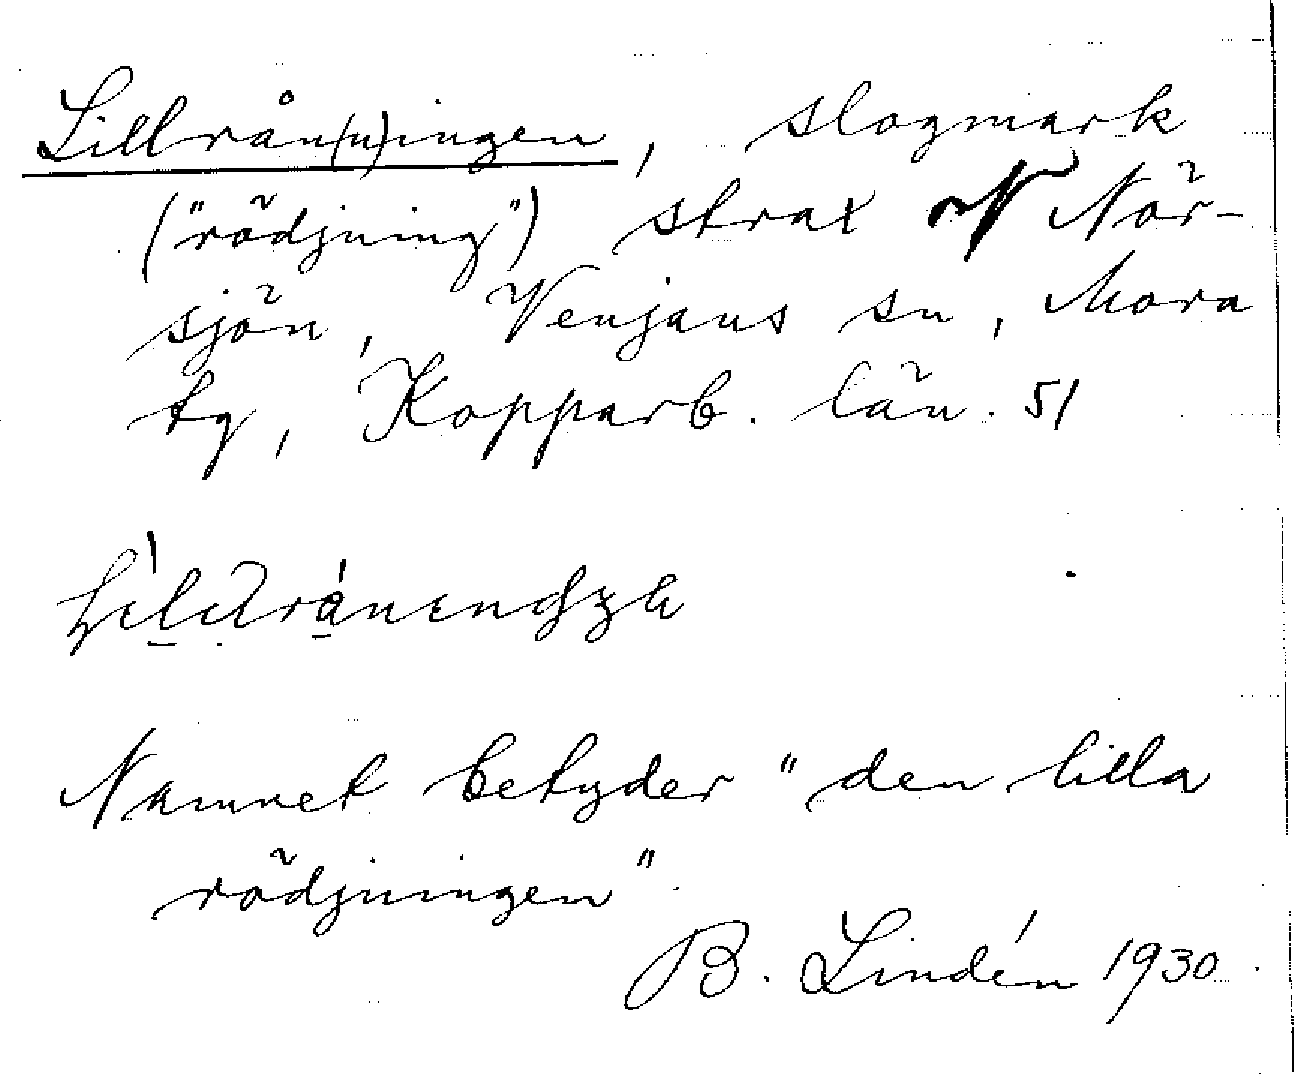 Lillrån(n)ingen, slogmark
("rödjning") strax N Nör-
sjön, Venjans sn, Mora
tg, Kopparb. län. 51
Namnet betyder "den lilla
rödjningen".
B. Lindén 1930.